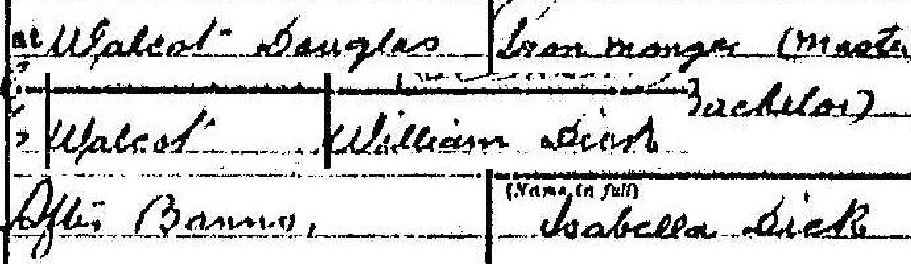 at Walcot Douglas Iron monger (Master
Bachelor)
Walcot William Dick
(Name in full)
After Banns, Isabella Dick